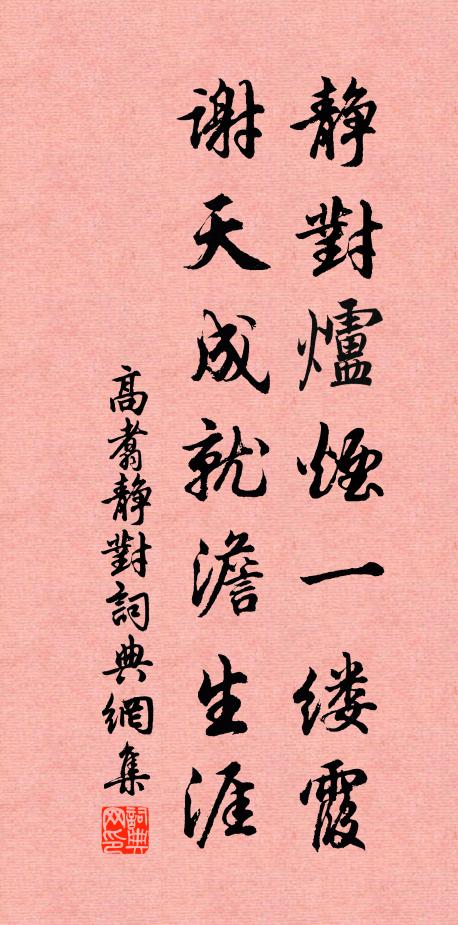 靜對爐煙一缕霞
謝天成就澹生涯
高翥靜對詞典網集
詞典网印